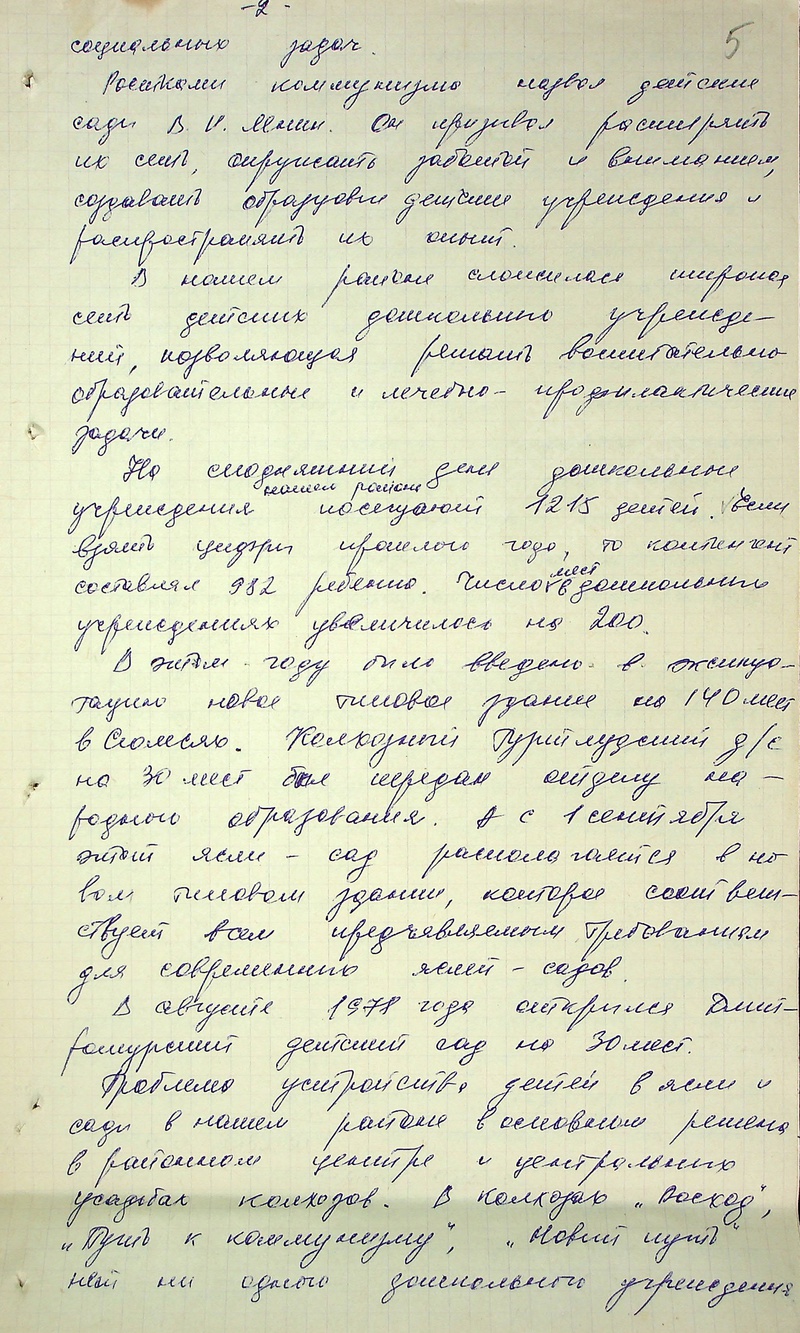 -2-
5
социальных задач.
Ростками коммунизма назвал детские
сады В. И. Ленин. Он призывал расширять
их сеть, окружать заботой и вниманием,
создавать образцовые детские учреждения и
распространять их опыт.
В нашем районе сложилась широкая
сеть детских дошкольных учрежде-
ний, позволяющая решать воспитательно
образовательные и лечебно-профилактические
задачи.
На сегодняшний день дошкольные
учреждения нашем районе посещают 1215 детей. Если
взять цифры прошлого года, то контингент
составлял 982 ребенка. Число мест в дошкольных
учреждениях увеличилось на 200.
В этом году было введено в эксплуа-
тацию новое типовое здание на 140 мест
в Сюмсях. Колхозный Гуртлудский д/с
на 30 мест был передан отделу на-
родного образования. А с 1 сентября
этот ясли-сад располагается в но
вом типовом здании, которое соответ-
ствует всем предъявляемым требованиям
для современных яслей-садов.
В августе 1978 года открылся Дмит-
рошурский детский сад на 30 мест.
Проблема устройства детей в ясли и
сады в нашем районе в основном решена
в районном центре и центральных
усадьбах колхозов. В колхозах „Восход",
„Путь к коммунизму", „Новый путь"
нет ни одного дошкольного учреждения